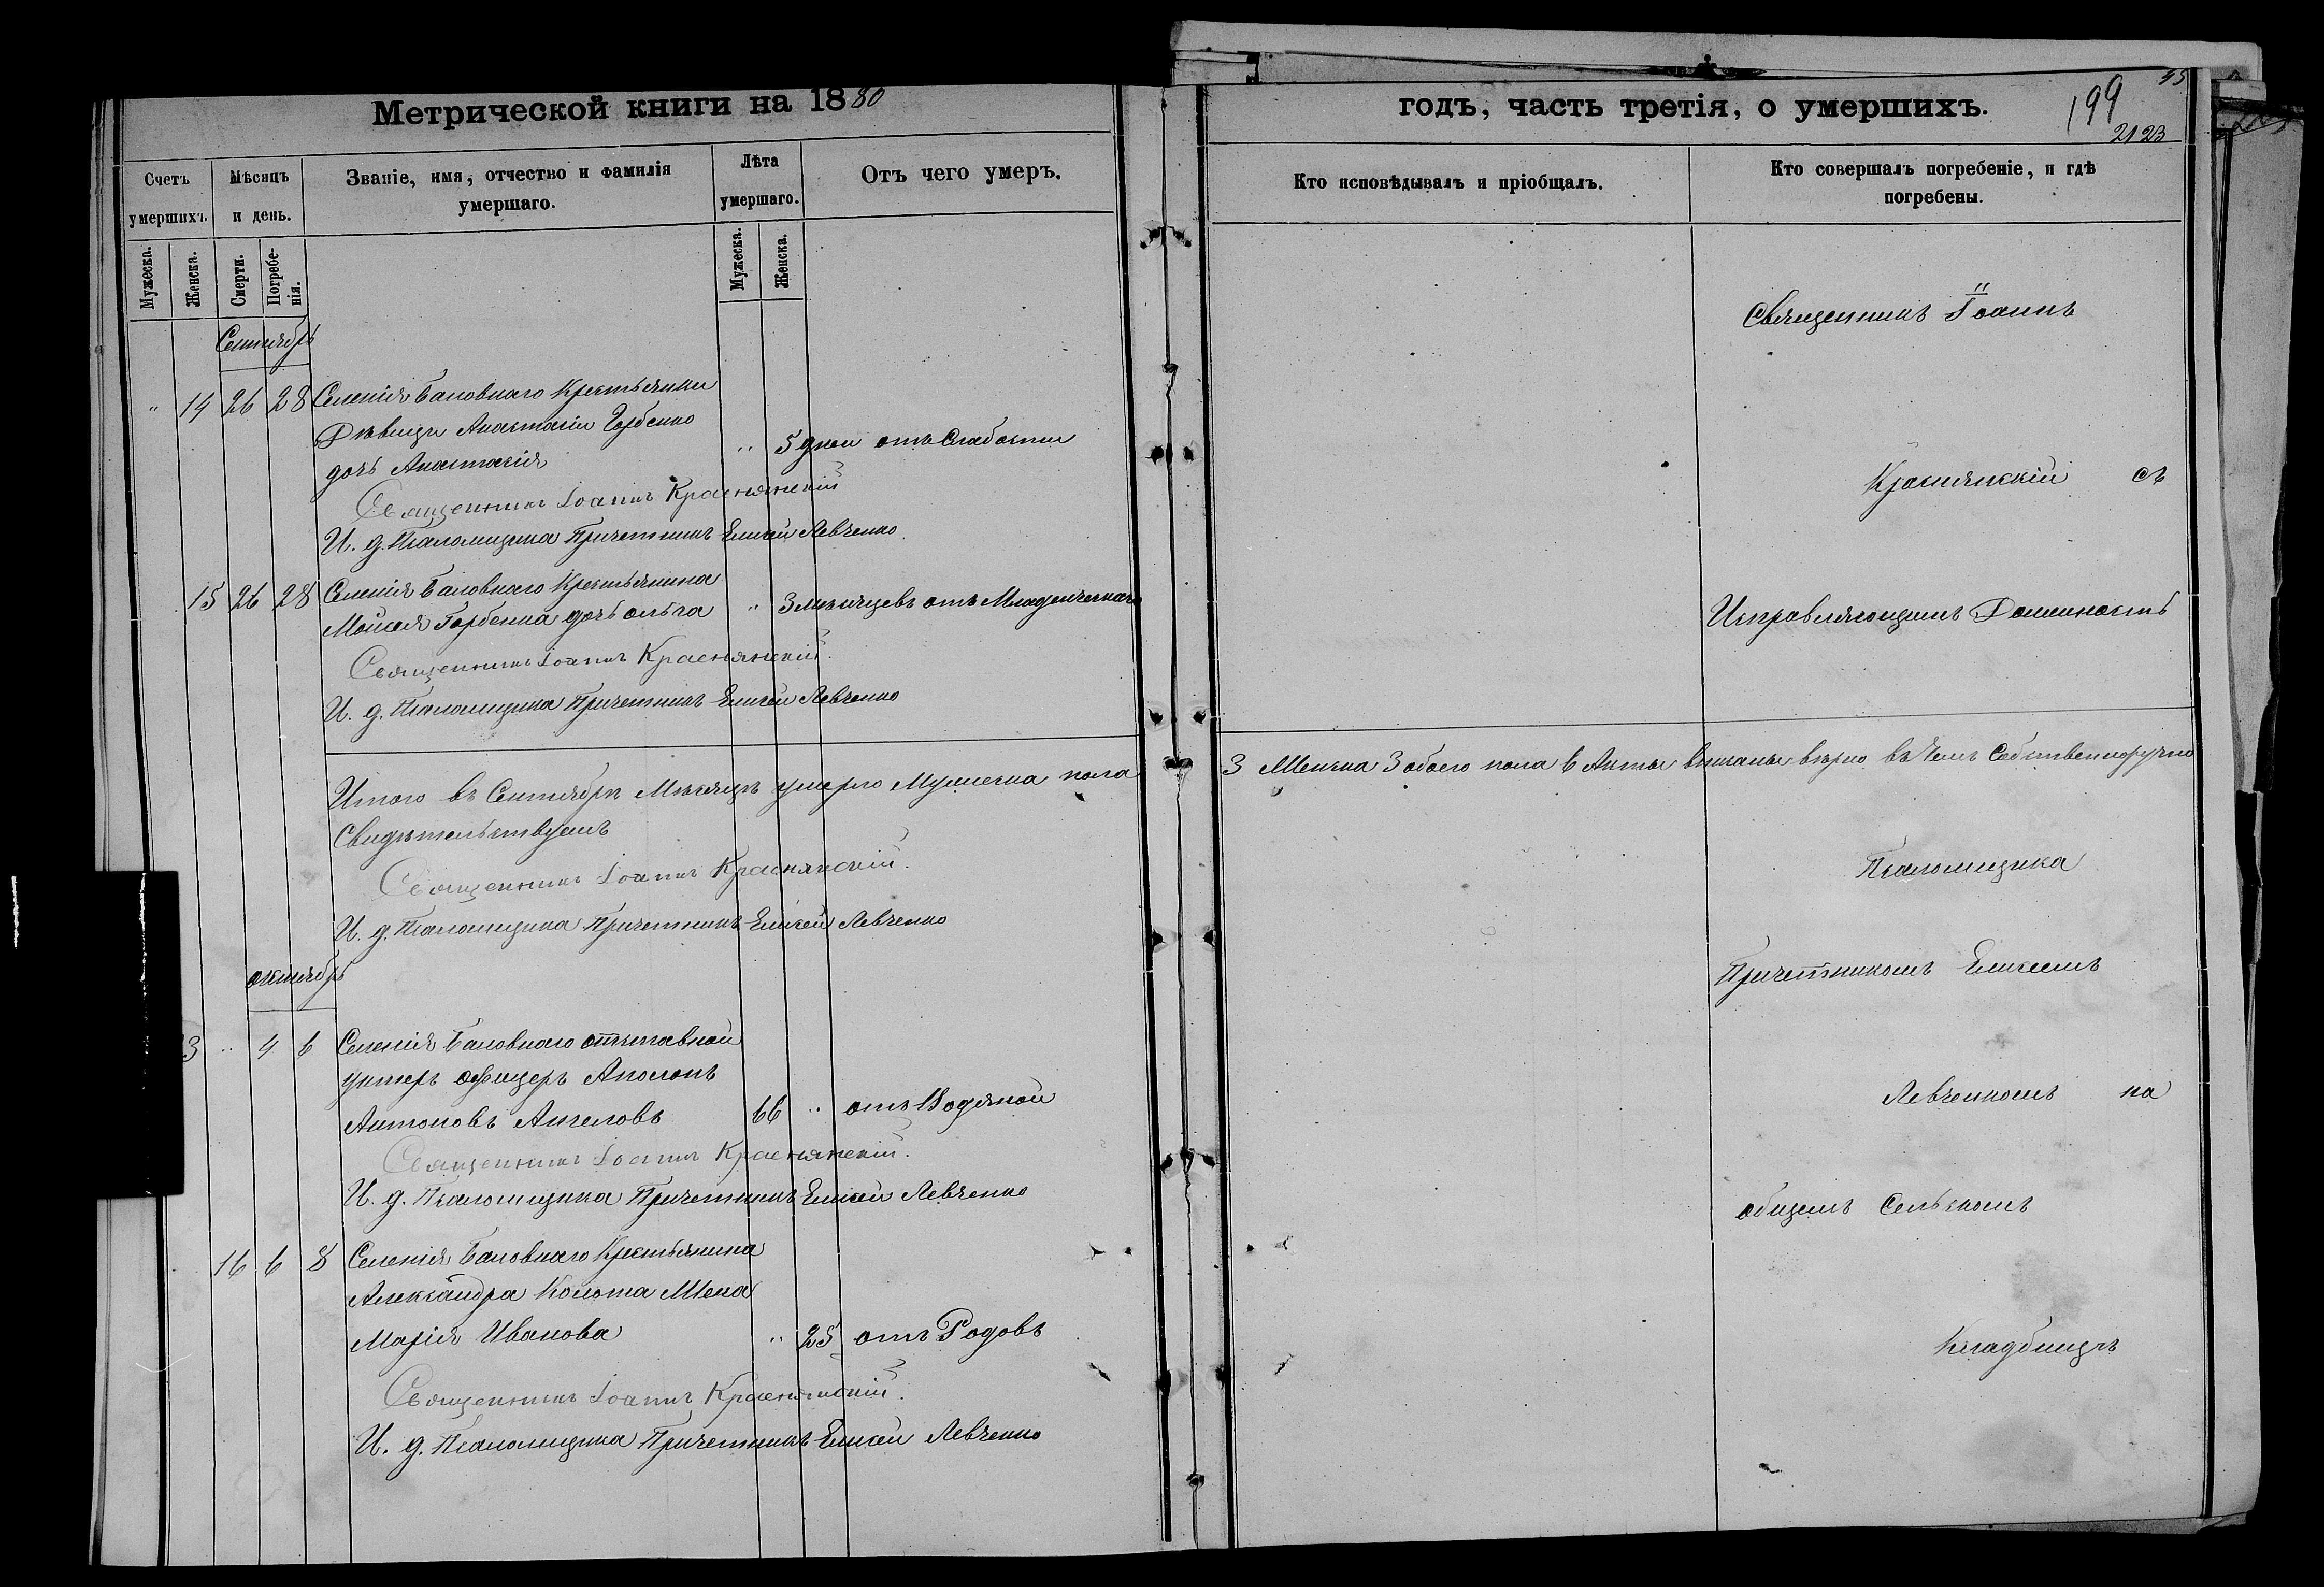 Метрической книги на 1880
годъ, часть третія, о умершихъ.
199
45
2123
Счетъ умершихъ.
Мѣсяцъ и день.
Званіе, имя, отчество и фамилія умершаго.
Лѣта умершаго.
Отъ чего умеръ.
Кто исповѣдывалъ и пріобщалъ.
Кто совершалъ погребеніе, и гдѣ погребены.
Мужеска.
Женска.
Смерти.
Погребе-
нія.
Мужеска.
Женска.
Сентябрь
" 14 26 28 Селенія Баловнаго Крестьянки
Дѣвицы Анастасіи Горбенко
дочь Анастасія " 5 дней отъ Слабости
Священникъ Іоаннъ Краснянскій
И. д. Псаломщика Причетникъ Елисей Левченко
15 26 28 Селенія Баловнаго Крестьянина
Моисея Горбенка дочь Ольга " 3 месяцевъ отъ Младенческаго
Священникъ Іоаннъ Краснянскій.
И. д. Псаломщика Причетникъ Елисей Левченко
Итого въ Сентябрѣ Мѣсяцѣ умерло Мужеска пола
3 Женска 3 обоего пола 6 Акты вписаны вѣрно въ чемъ Собственноручно
Свидѣтельствуемъ
Священникъ Іоаннъ Краснянскій.
И. д. Псаломщика Причетникъ Елисей Левченко
октябрь
3 " 4 6 Селенія Баловнаго отставной
унтеръ офицеръ Аполонъ
Антоновъ Ангеловъ 66 " отъ Водяной
Священникъ Іоаннъ Краснянскій.
И. д. Псаломщика Причетникъ Елисей Левченко
16 6 8 Селенія Баловнаго Крестьянина
Александра Колота Жена
Марія Иванова " 25 отъ Родовъ
Священникъ Іоаннъ Краснянскій.
И. д. Псаломщика Причетникъ Елисей Левченко
Священникъ Іоаннъ
Краснянскій съ
Исправляющимъ Должность
Псаломщика
Причетникомъ Елисеемъ
Левченкомъ на
общемъ Сельскомъ
Кладбищѣ